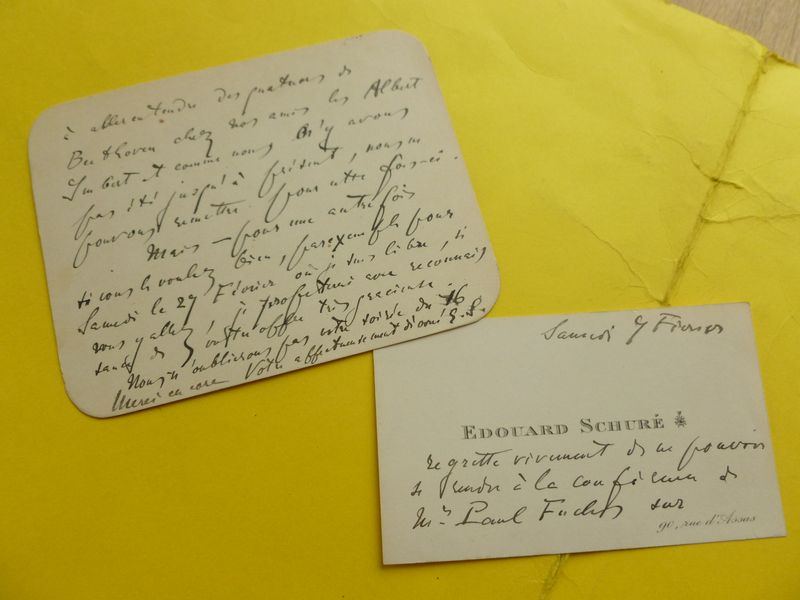 à aller entendre des quatuors de
Beethoven chez nos amis les Albert
Imbert et comme nous n'y avons
pas été jusqu'à présent, nous ne
pouvons remettre pour cette fois-ci.
Mais – pour une autre fois
si vous le voulez bien, par exemple pour
Samedi le 29 Février où je suis libre, si
vous y allez, je profiterai avec reconnais
sance de votre offre très gracieuse.
Nous n'oublierons pas votre soirée du 16
Merci encore Votre affectueusement dévoué E. S.
Samedi 7 Février
EDOUARD SCHURÉ
regrette vivement de ne pouvoir
se rendre à la conférence de
Mr Paul Fuchs sur
90, rue d'Assas